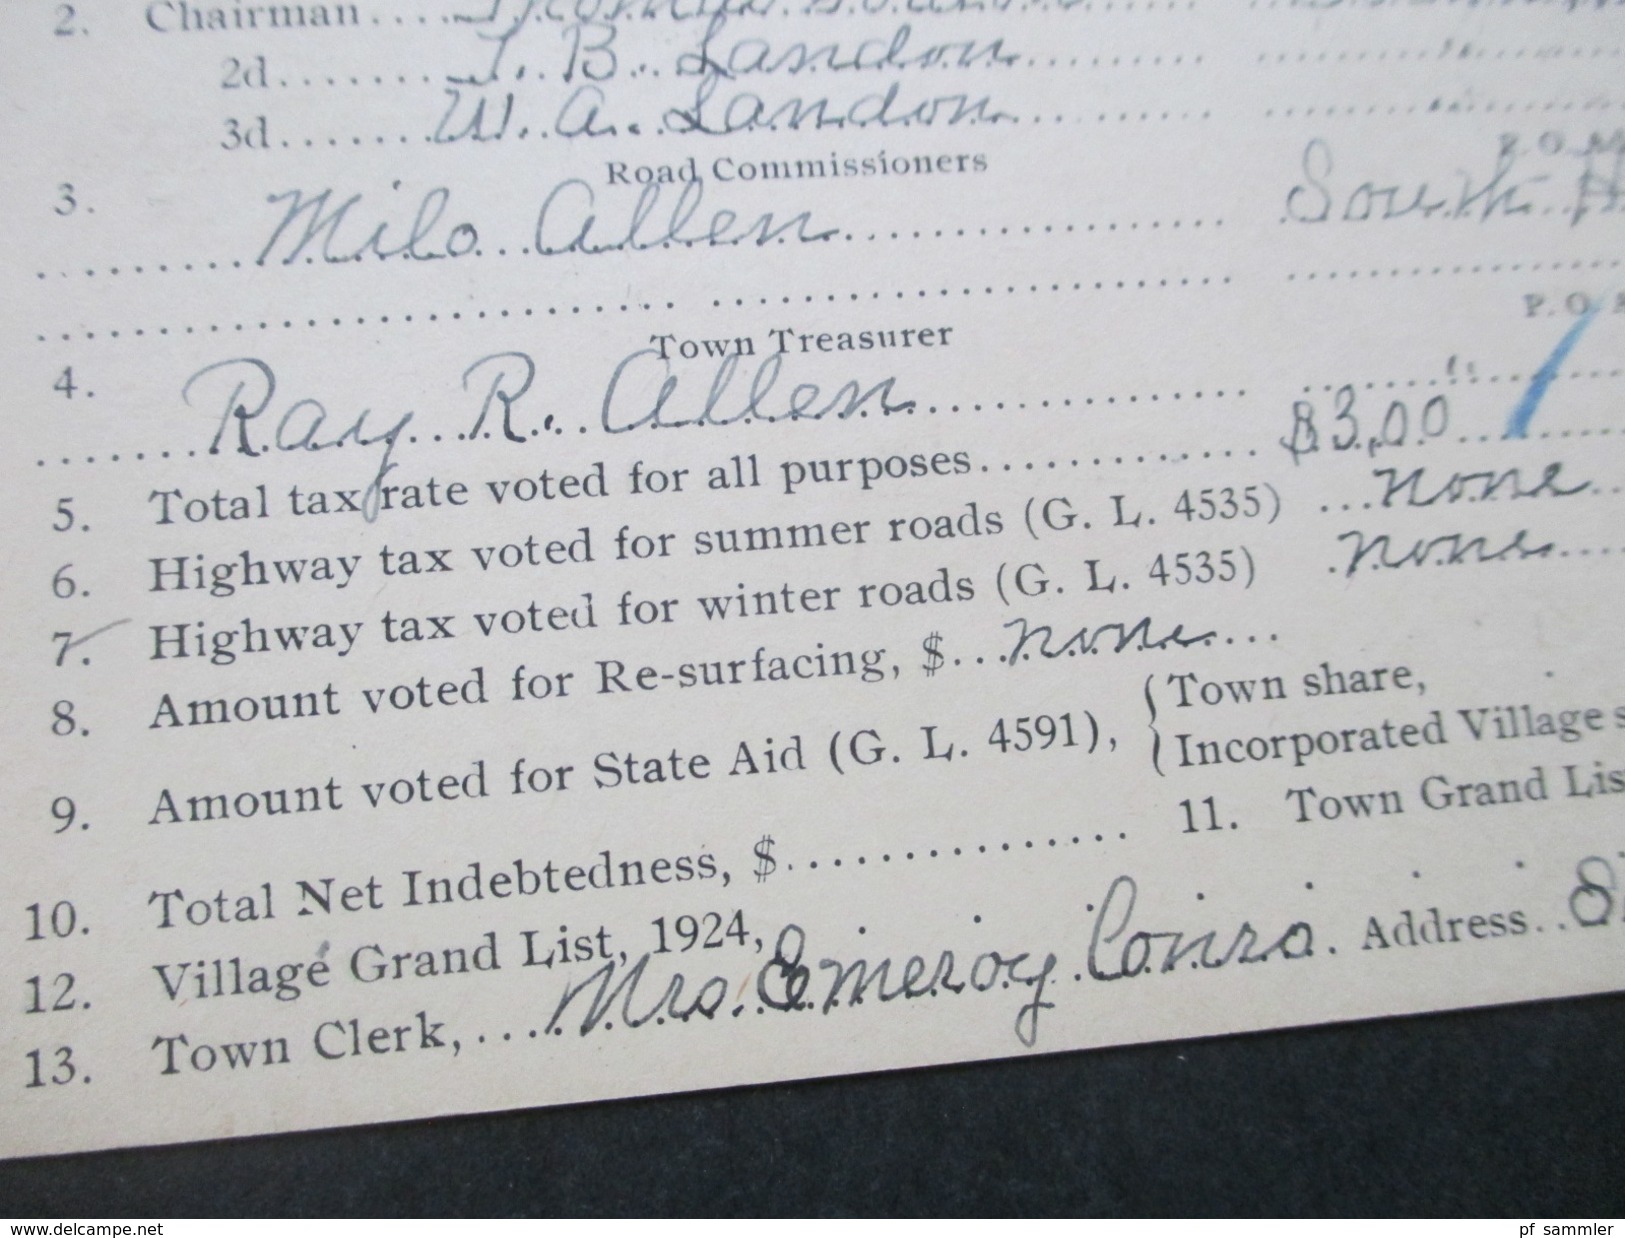 2. Chairman
2d. T. B. Landon
3d. W. A. Landon
Road Commissioners
3. Milo Allen South H
P.O.
Town Treasurer
4. Ray R. Allen "
5. Total tax rate voted for all purposes $3.00
6. Highway tax voted for summer roads (G. L. 4535) none
7. Highway tax voted for winter roads (G. L. 4535) none
8. Amount voted for Re-surfacing, $ none
9. Amount voted for State Aid (G. L. 4591), { Town share,
Incorporated Village s
10. Total Net Indebtedness, $ 11. Town Grand Lis
12. Village Grand List, 1924,
13. Town Clerk, Mrs. Emeroy Conro. Address
www.delcampe.net
pf_sammler